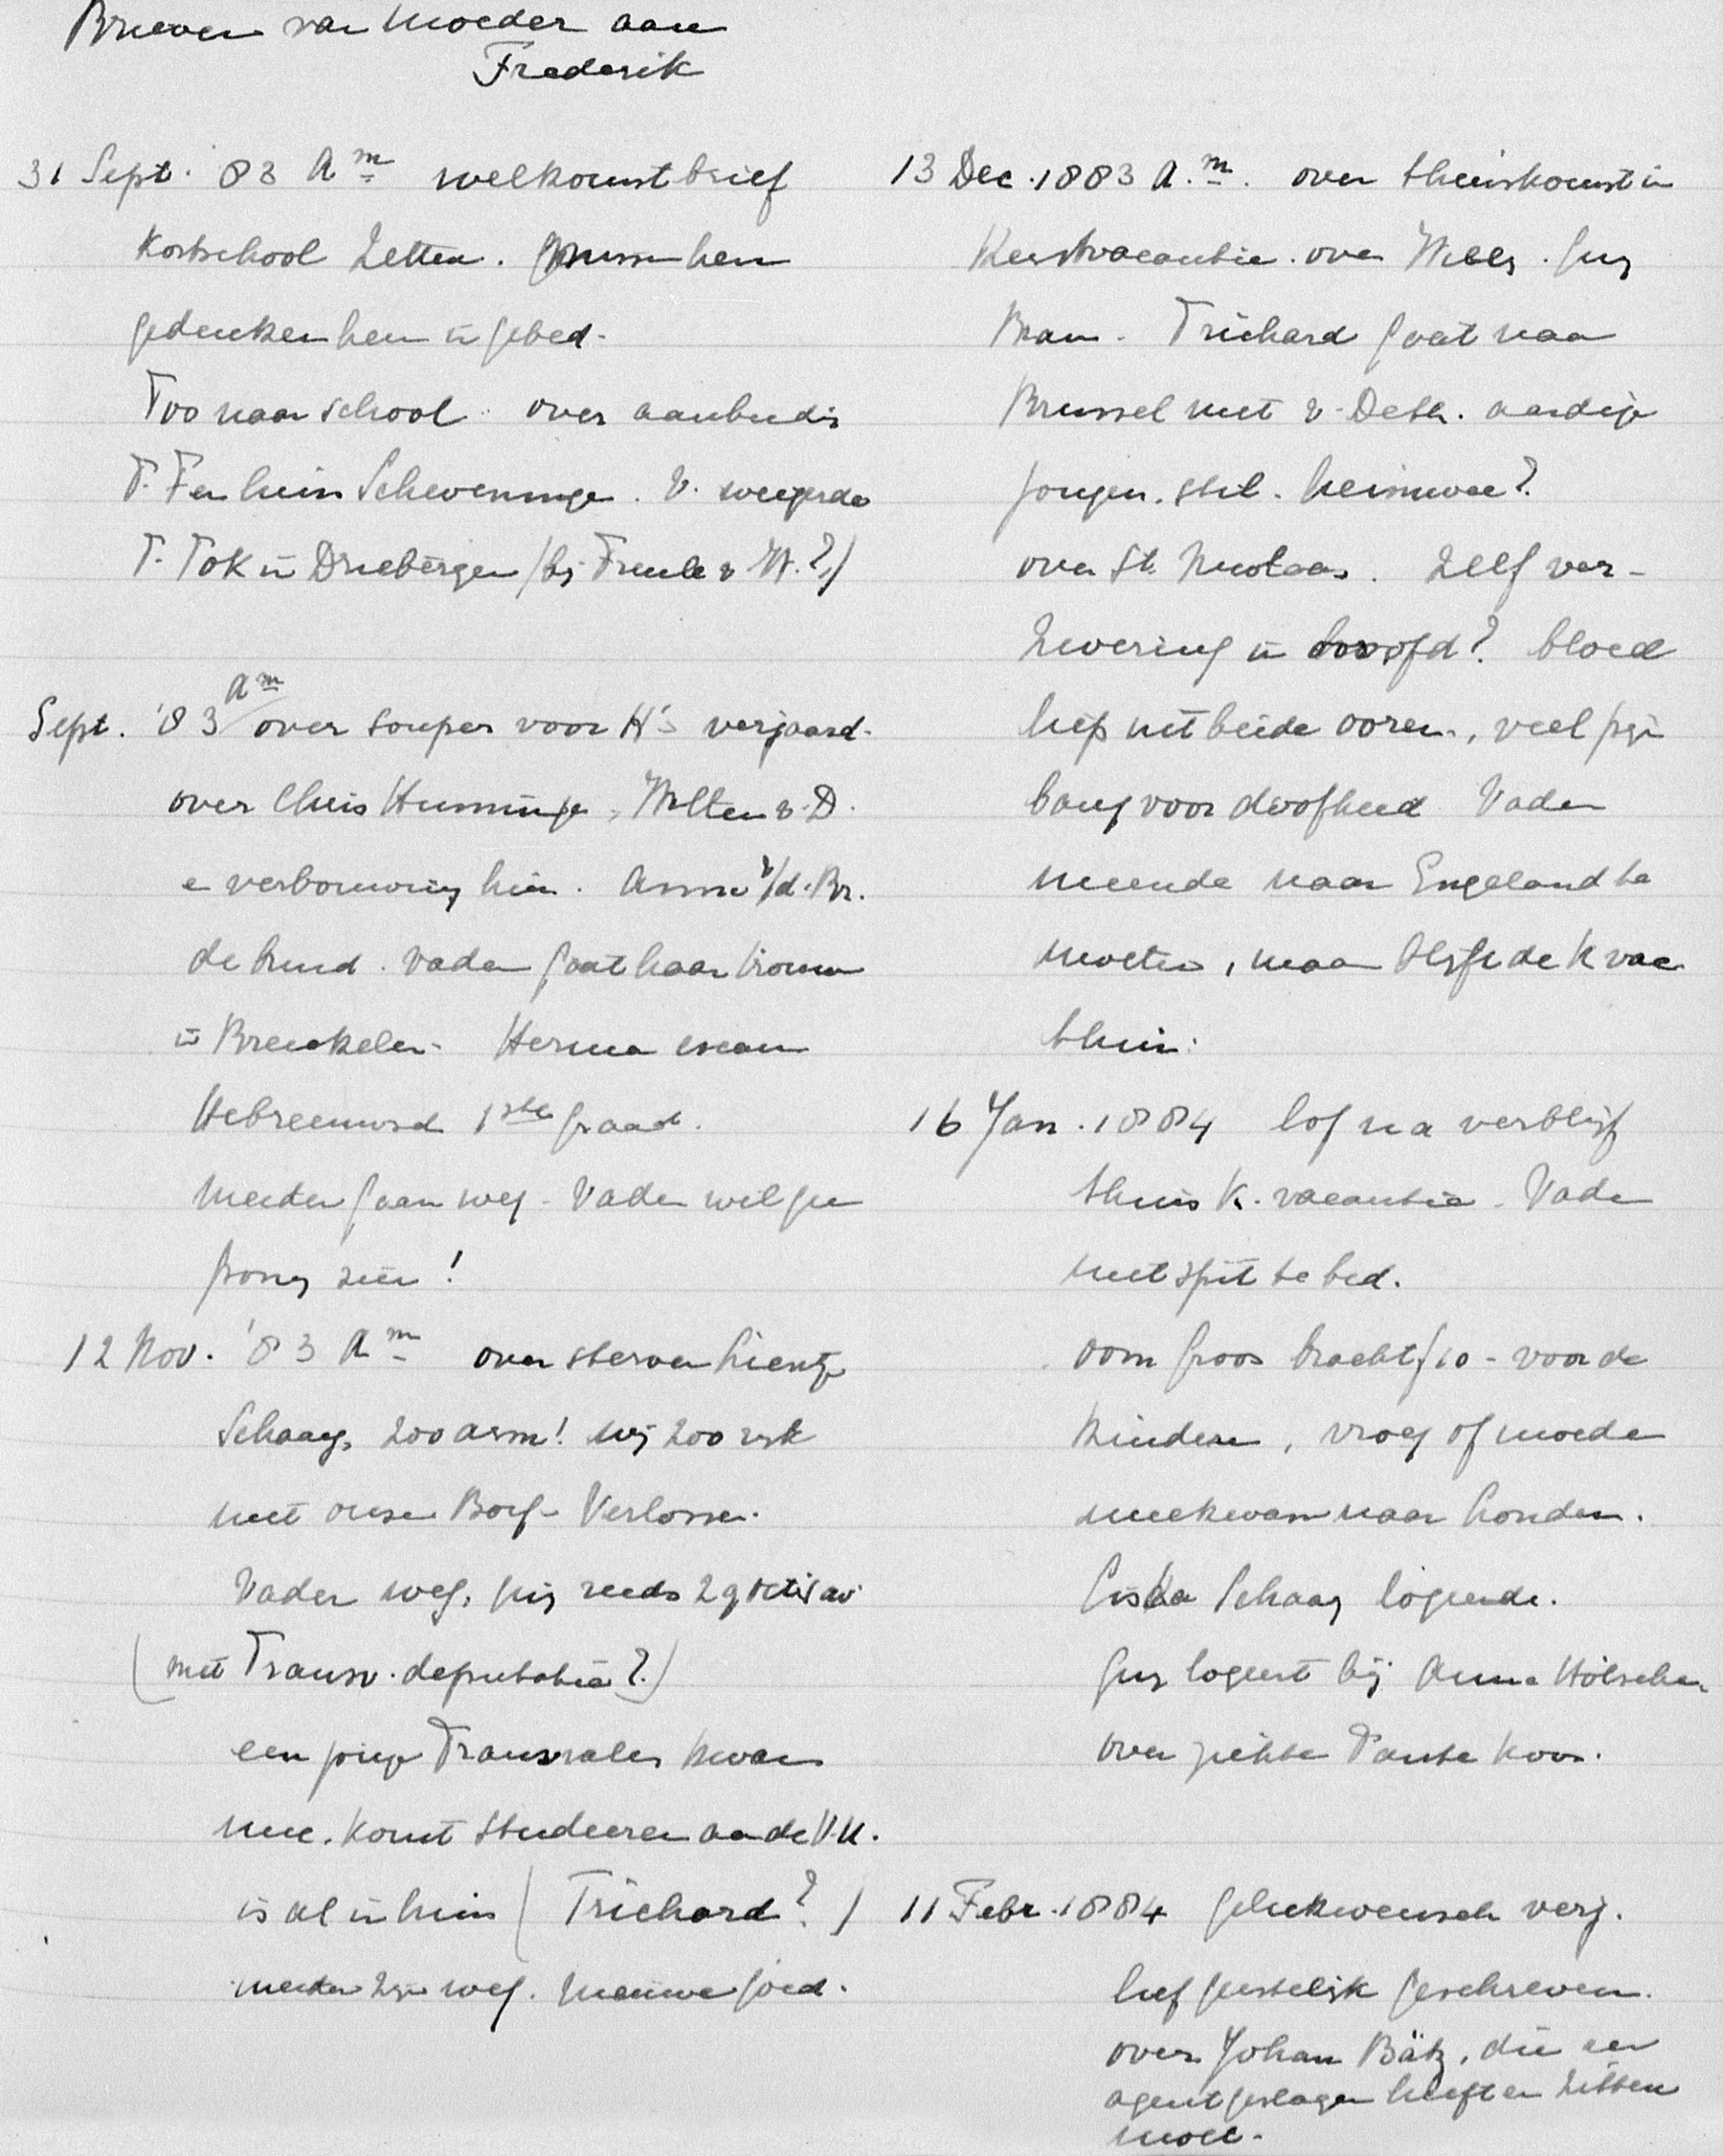 Brieven van Moeder aan
Frederik
31 Sept. '83 Am welkomstbrief
Kostschool Zetten. missen hem
gedenken hem in gebed.
Too naar school. over aanbeeldis
T. Fen huis Scheveningen. V. weigerde
T. Tok in Driebergen (bij Freule v W.?)
Sept. '83 Am over souper voor H's verjaard.
over Chris Humminge, Wolter v. D.
e verbouwing hier. Anna v/d. Br.
de bruid. vader gaat haar trouwen
in Breukelen. Herma exam
Hebreeuwsch 1ste graad.
Meiden gaan weg. Vader wil gee
pony zien!
12 Nov. '83 Am over sterven Lientje
Schaay, zoo arm! wij zoo rijk
met onzen Borg. Verlosser.
Vader weg, ging reeds 29 Oct
(met Transv. deputatie?)
een jonge Transvaler kwam
mee. komt studeeren aan de V.U.
is al in huis (Trichard?)
meiden zijn weg. Nieuwe goed.
13 Dec. 1883 A.m. over thuiskomst in
Kerstvacantie. over Willy. Guy
Bram. Trichard gaat naar
Brussel met v. Deth. aardige
jongen. stil. heimwee?
over St. Nicolaas. Zelf ver-
zwering in hoofd? bloed
liep uit beide ooren, veel pijn
bang voor doofheid Vader
meende naar Engeland te
moeten, maar blijft de K vac
thuis.
16 Jan. 1884 lof na verblijf
thuis K. vacantie. Vader
met spit te bed.
Oom Groos bracht f 10 - voor de
Kinderen, vroeg of moeder
meekwam naar Londen.
Ciska Schaay logeerde.
Guy logeert bij Anna Hölscher
over ziekte Tante Koos.
11 Febr. 1884 Gelukwensch verj.
lief geestelijk geschreven.
over Johan Bätz, die een
agent geslagen heeft en zitten
moet.